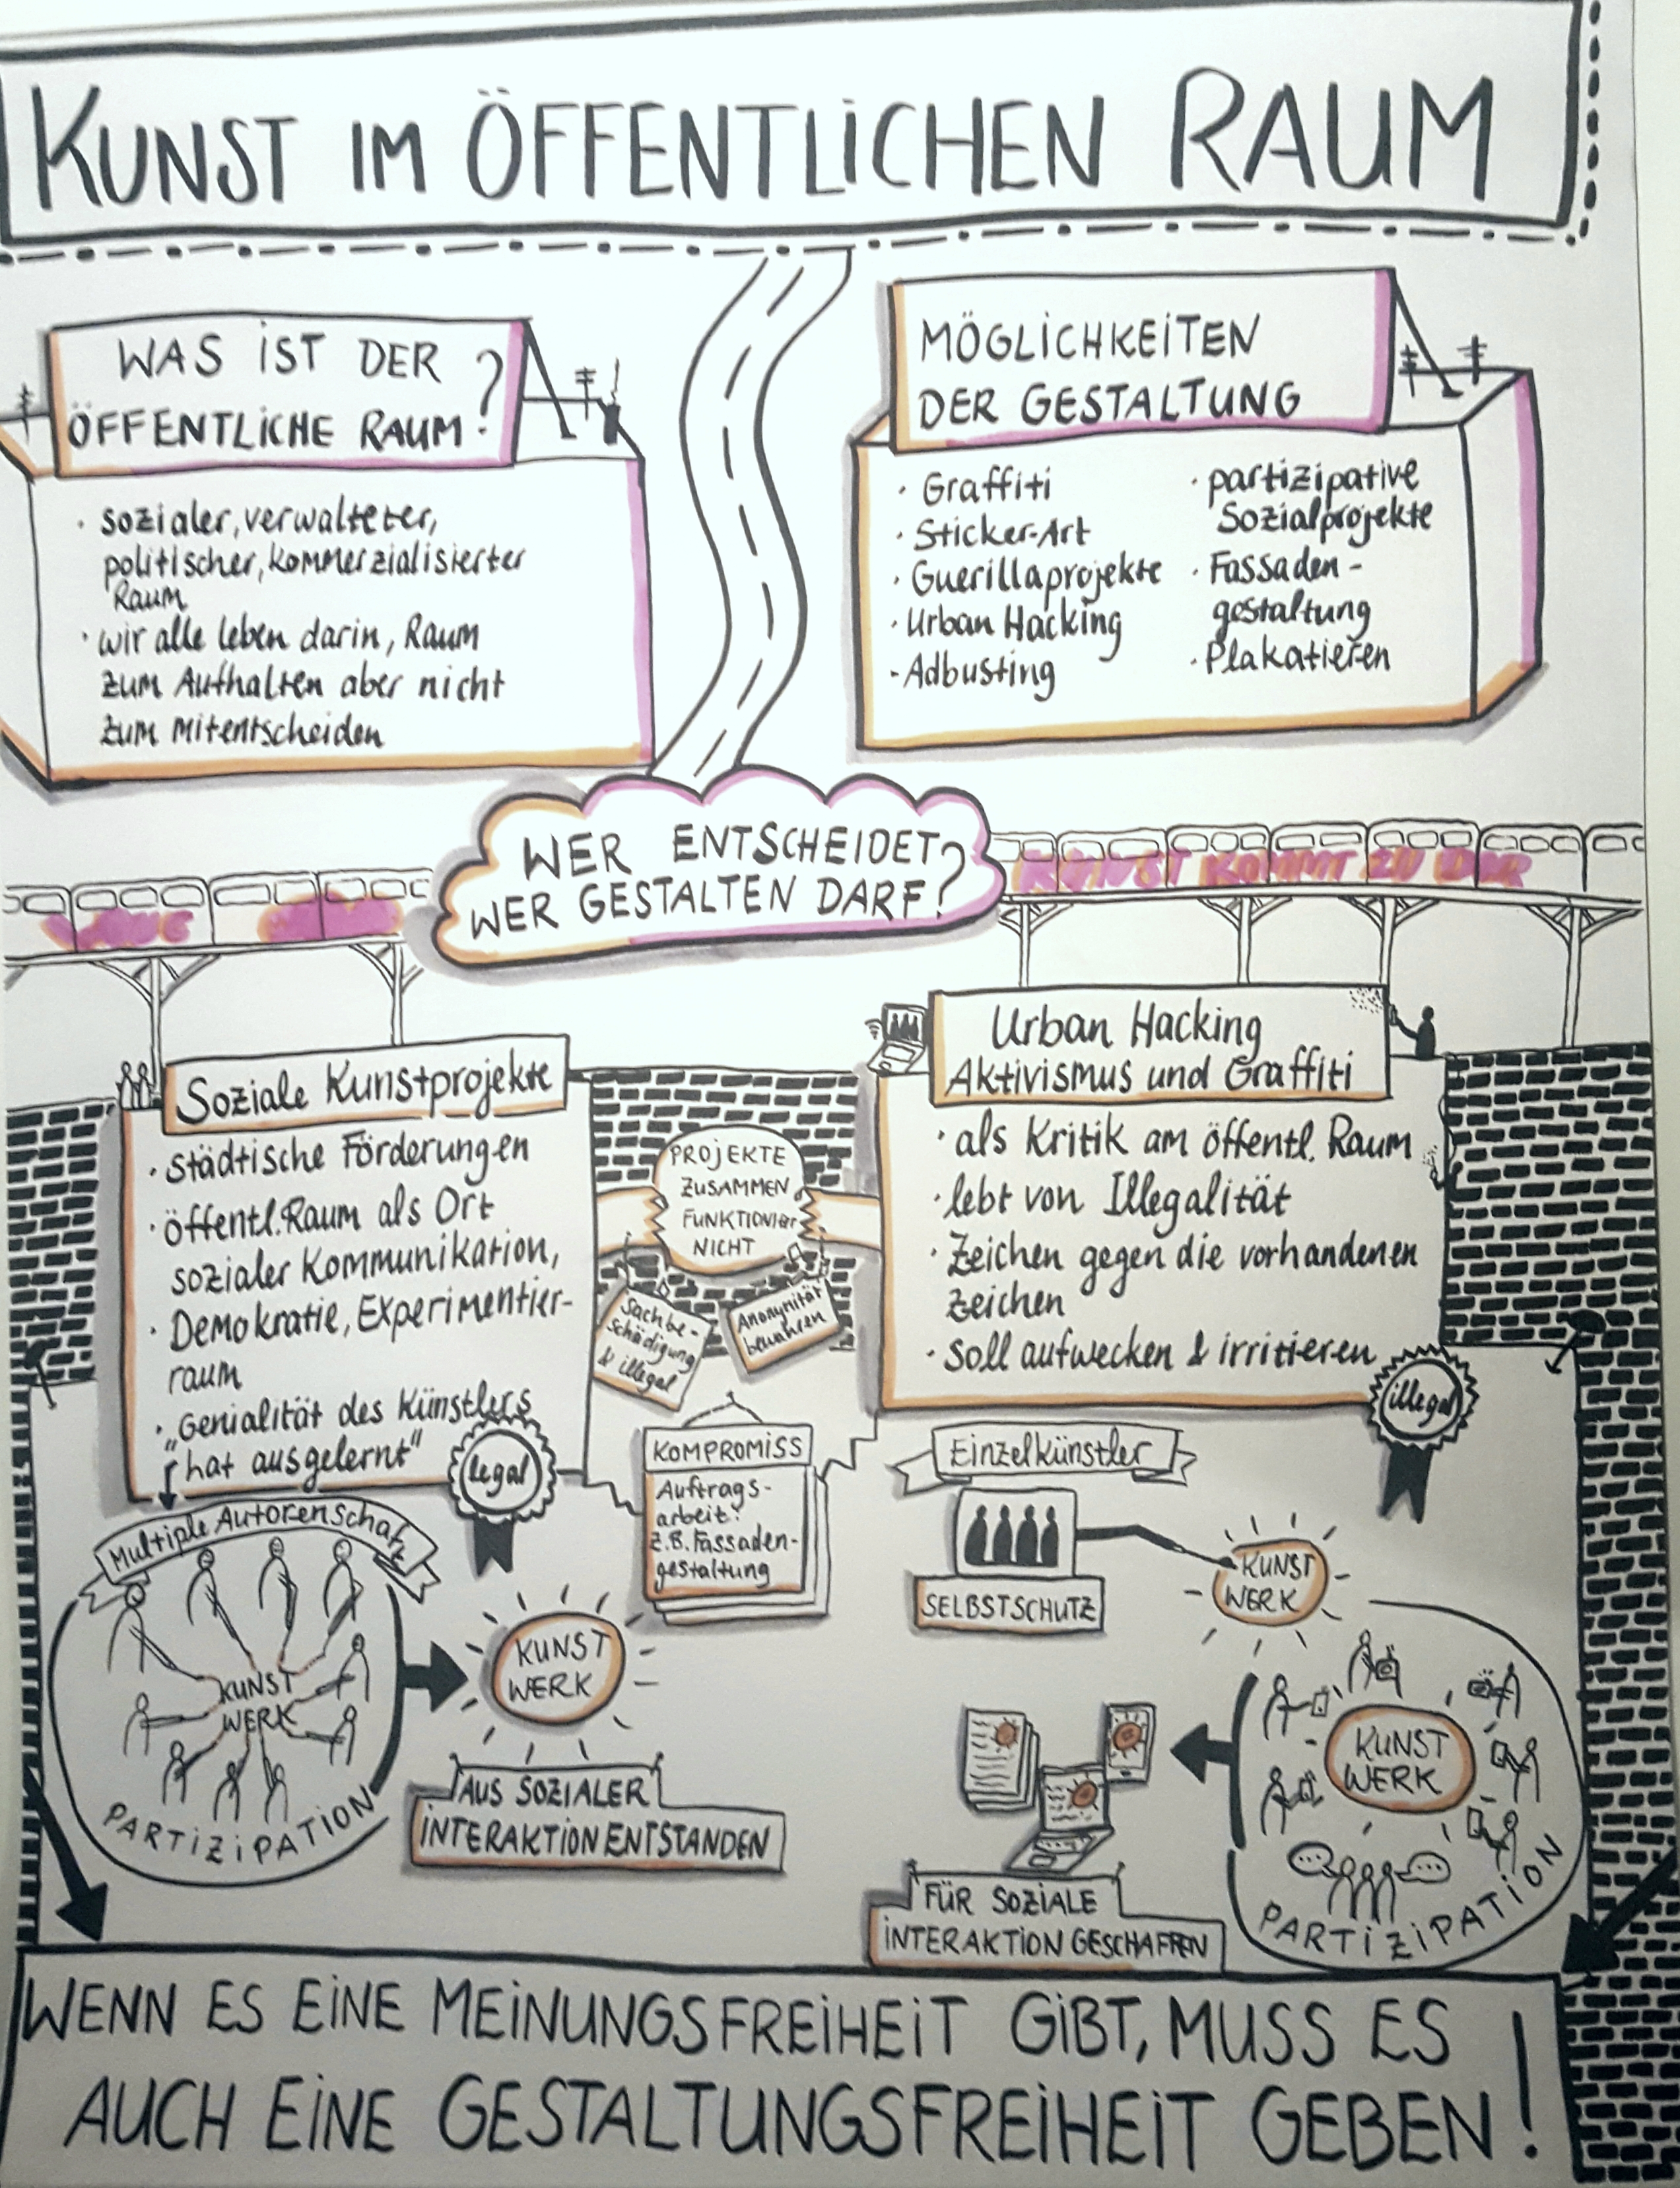 KUNST IM ÖFFENTLICHEN RAUM
WAS IST DER
ÖFFENTLICHE RAUM?
· sozialer, verwalteter,
politischer, kommerzialisierter
Raum
· wir alle leben darin, Raum
zum Aufhalten aber nicht
zum mitentscheiden
MÖGLICHKEITEN
DER GESTALTUNG
· Graffiti
· Sticker-Art
· Guerillaprojekte
· Urban Hacking
- Adbusting
· partizipative
Sozialprojekte
· Fassaden-
gestaltung
· Plakatieren
WER ENTSCHEIDET
WER GESTALTEN DARF?
KUNST KOMMT ZU DIR
Soziale Kunstprojekte
· städtische Förderungen
· öffentl. Raum als Ort
sozialer Kommunikation,
· Demokratie, Experimentier-
raum
· „Genialität des Künstlers
hat ausgelernt"
legal
PROJEKTE
ZUSAMMEN
FUNKTIONIERT
NICHT
Sachbe-
schädigung
& illegal
Anonymität
bewahren
Urban Hacking
Aktivismus und Graffiti
· als Kritik am öffentl. Raum
· lebt von Illegalität
· Zeichen gegen die vorhandenen
Zeichen
· soll aufwecken & irritieren
illegal
KOMPROMISS
Auftrags-
arbeit:
z.B. Fassaden-
gestaltung
Multiple Autorenschaft
KUNST
WERK
PARTIZIPATION
KUNST
WERK
AUS SOZIALER
INTERAKTION ENTSTANDEN
Einzelkünstler
SELBSTSCHUTZ
KUNST
WERK
KUNST
WERK
PARTIZIPATION
FÜR SOZIALE
INTERAKTION GESCHAFFEN
WENN ES EINE MEINUNGSFREIHEIT GIBT, MUSS ES
AUCH EINE GESTALTUNGSFREIHEIT GEBEN!